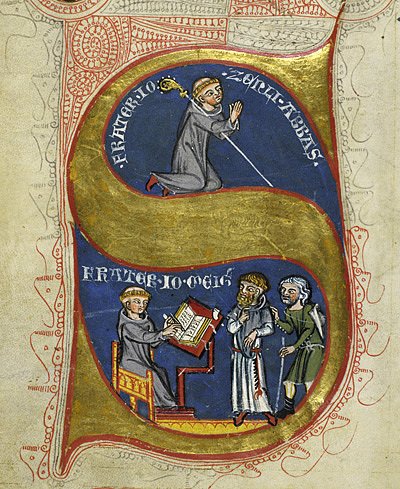 ·FRATER·IO· ZENLI·ABBAS·
FRATER·IO·MEIꝰ